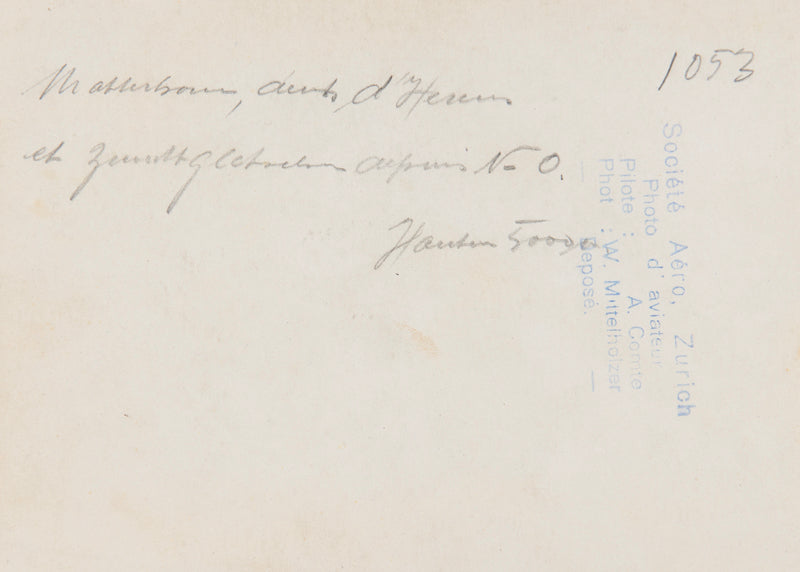 1053
Matterhorn, dents d'Herens
et Zmuttgletscher depuis N-O.
Hauteur 5000m
Société Aéro, Zurich
Photo d'aviateur
Pilote : A. Comte
Phot : W. Mittelholzer
— Deposé. —